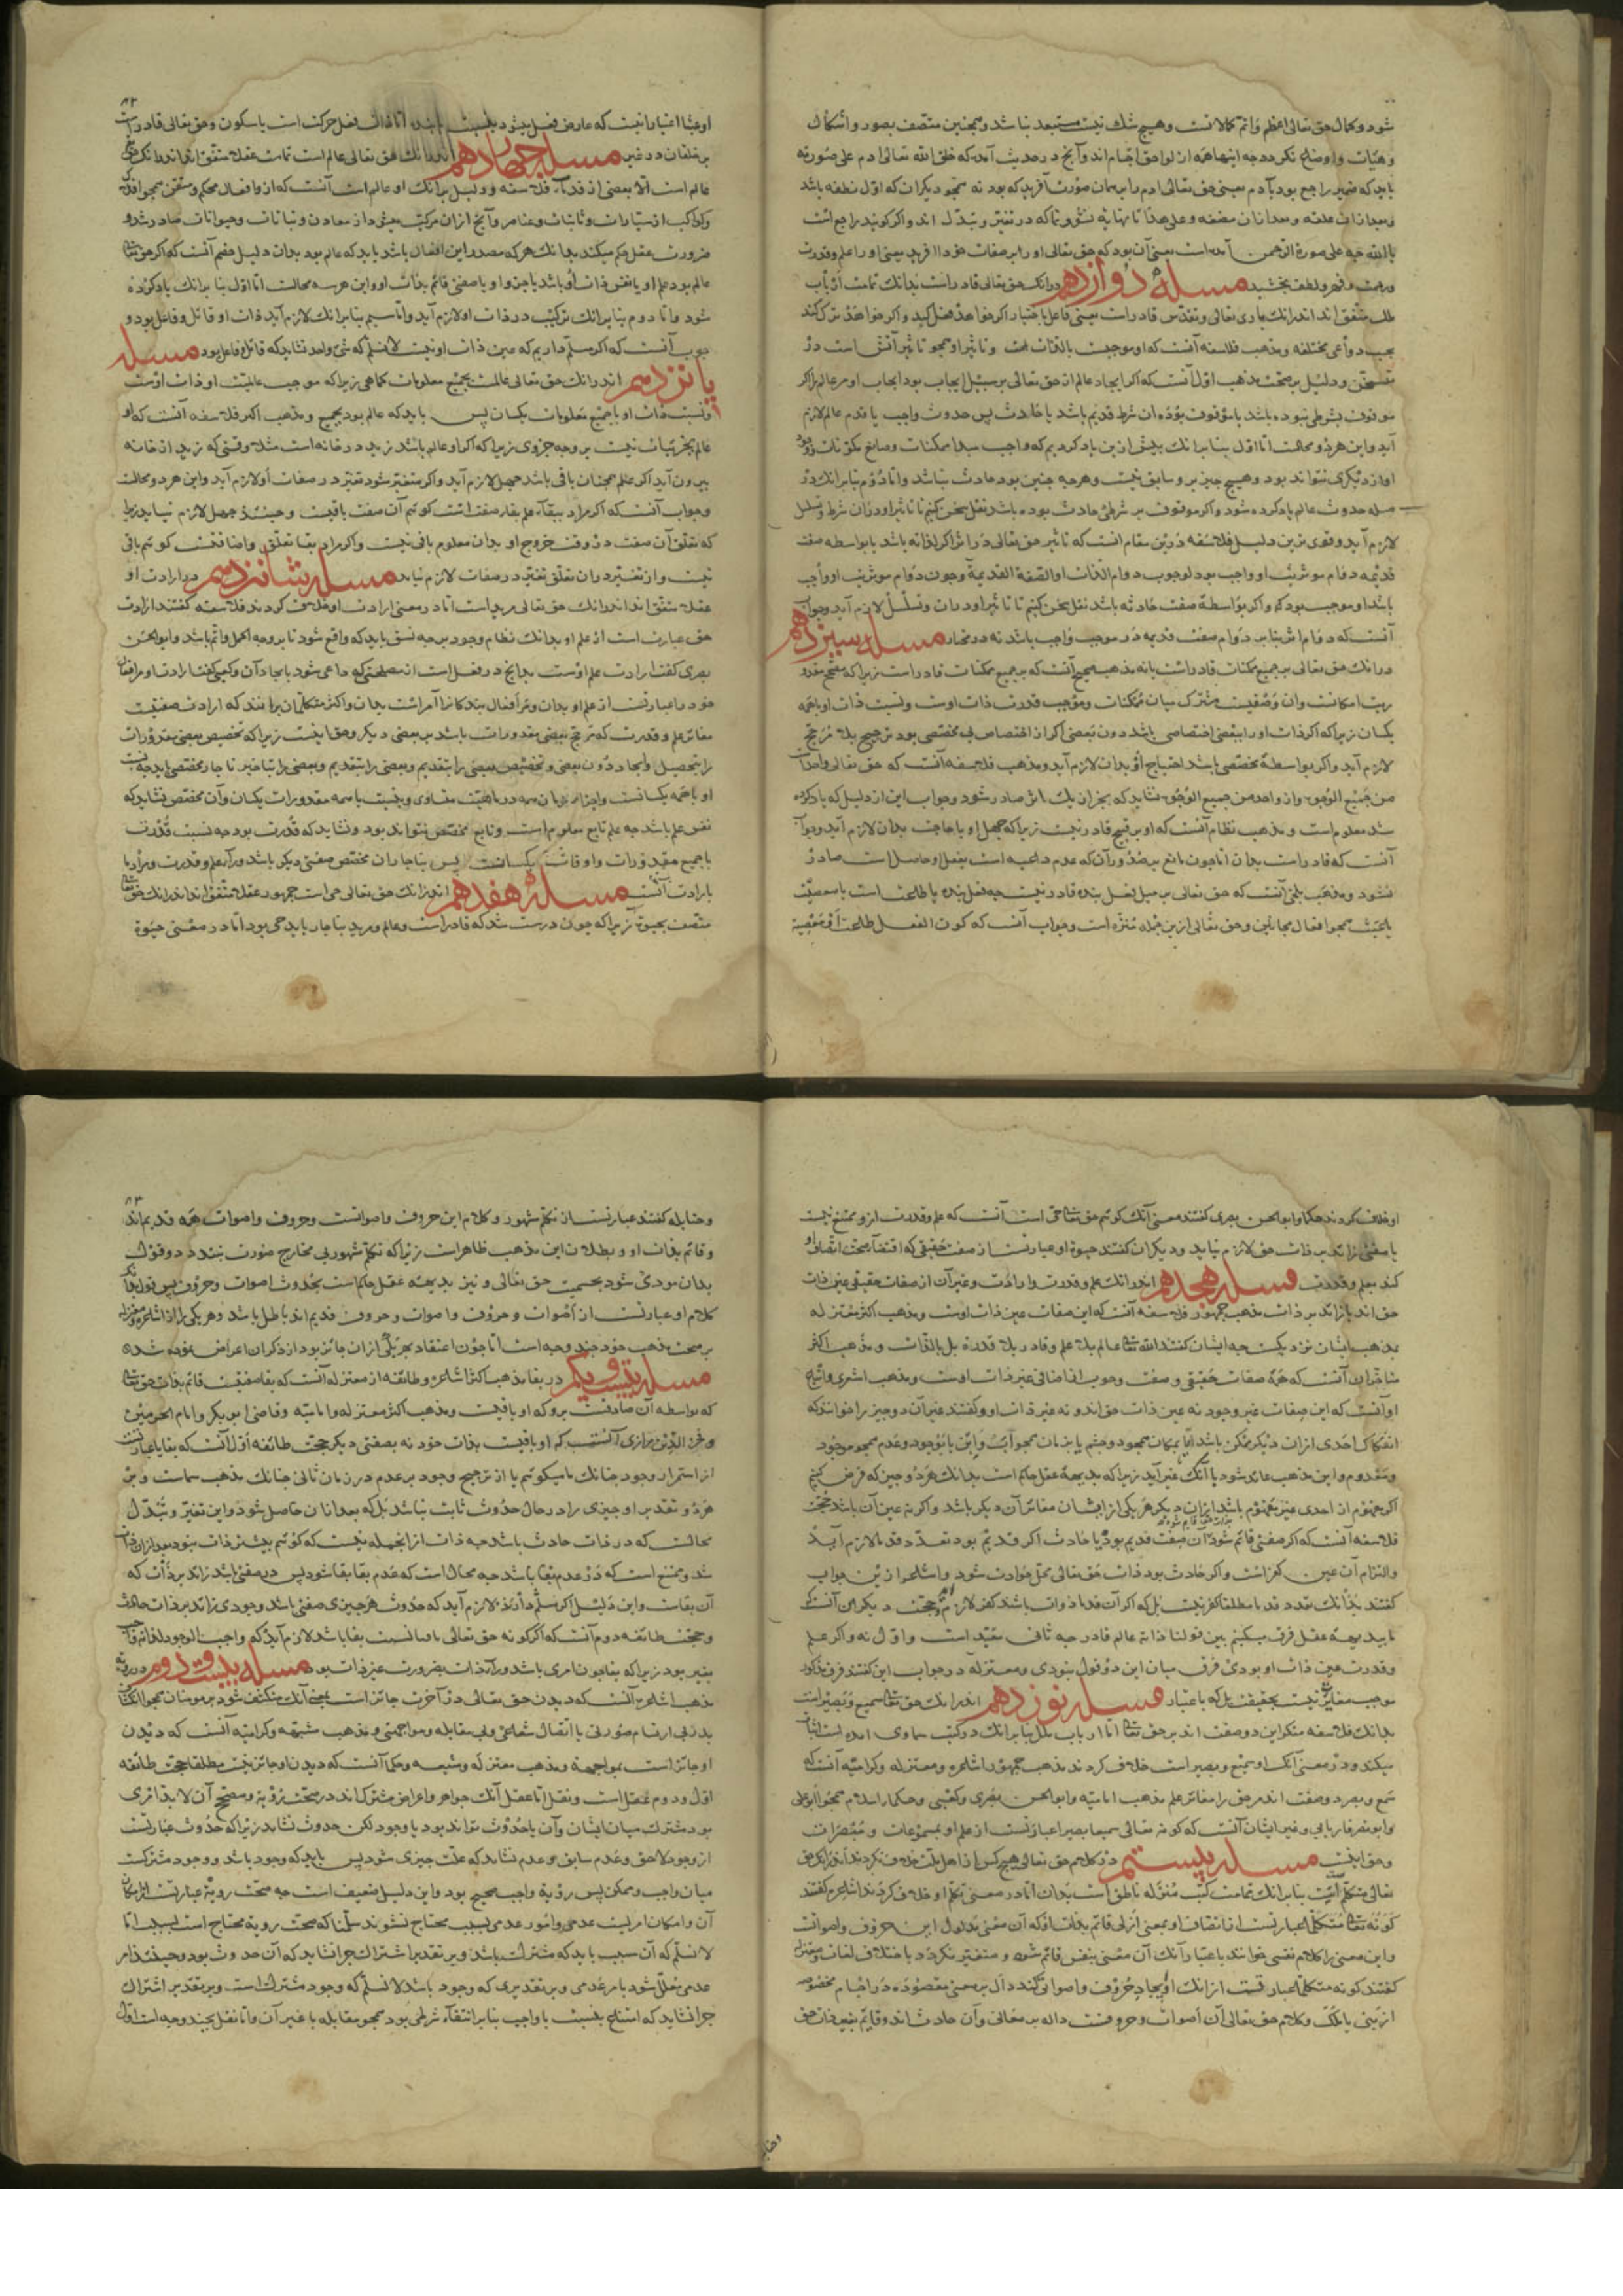 شود و کمال حق تعالی اعظم و اتم کمالاتست و هیچ شک نیست مستبعد نباشد و همچنین متصف بصور و اشکال
و هیآت و اوضاع نکردد چه اینها همه از لواحق اجسام اند و آنچ در حدیث آمد که خلق الله تعالی ادم علی صورته
باید که ضمیر راجع بود بآدم یعنی حق تعالی ادم را بهمان صورت آفرید که بود نه همچو دیکران که اول نطفه باشد
و بعد از ان علقه و بعد از ان مضغه و علی هذا تا بنهایه نشو و نما که در تغیر و تبدل اند و اکر کویند راجع است
بالله چه علی صورة الرحمن آمده است معنی آن بود که حق تعالی او را بر صفات خود آفرید یعنی او را علم و قدرت
و رحمت و قهر و لطف بخشید مسلهٔ دوازدهم در انک حق تعالی قادر است بدانک تمامت ارباب
ملل متفق اند اندر انک باری تعالی و تقدس قادر است یعنی فاعل باختیار اکر خواهد فعل کند و اکر خواهد ترک کند
بحسب دواعی مختلفه و مذهب فلاسفه آنست که او موجبست بالذات و تاثیر او همچو تاثیر آتش است در
سوختن و دلیل بر صحت مذهب اول آنست که اکر ایجاد عالم از حق تعالی بر سبیل ایجاب بود ایجاب او مر عالم را اکر
موقوف بشرطی نبوده باشد یا موقوف بوده ان شرط قدیم باشد یا حادث پس حدوث واجب یا قدم عالم لازم
آید و این هر دو محالست اما اول بنا بر انک پیش ازین یاد کردیم که واجب مبدا ممکنات و صانع مکونات
او از دیکری نتواند بود و هیچ چیز برو سابق نیست و هرچه چنین بود حادث نباشد و اما دوم بنا بر انک در
مسله حدوث عالم یاد کرده شود و اکر موقوف بر شرطی حادث بوده باشد نقل سخن کنیم تا تاثیر او در ان شرط و تسلسل
لازم آید و قوی ترین دلیل فلاسفه درین مقام انست که تاثیر حق تعالی در اثر اکر لذاته باشد یا بواسطه صفت
قدیمه دوام موثریت او واجب بود لوجوب دوام الذات او الصفة القدیمة و چون دوام موثریت او واجب
باشد او موجب بود و اکر بواسطهٔ صفت حادثه باشد نقل سخن کنیم تا تاثیر او در ان و تسلسل لازم آید و جواب
آنست که دوام اثر بنا بر دوام صفت قدیمه در موجب واجب باشد نه در مختار مسله سیزدهم
در انک حق تعالی بر جمیع ممکنات قادر است یا نه مذهب صحیح آنست که بر جمیع ممکنات قادر است زیرا که مصحح مقدو
ریت امکانست و ان وصفیست مشترک میان ممکنات و موجب قدرت ذات اوست و نسبت ذات او با همه
یکسان زیرا که اکر ذات او را ببعضی اختصاصی باشد دون بعضی اکر از اختصاص بی مخصصی بود ترجیح بلا مرجح
لازم آید و اکر بواسطهٔ مخصصی باشد احتیاج او بدان لازم آید و مذهب فلاسفه آنست که حق تعالی واحد است
من جمیع الوجوه و از واحد من جمیع الوجوه نشاید که بجز از یک اثر صادر شود و جواب این از دلیل که یاد کرده
شد معلوم است و مذهب نظام آنست که او بر قبیح قادر نیست زیرا که جهل او یا حاجت بدان لازم آید و جواب
آنست که قادر است بدان اما چون مانع بر صدور آن که عدم داعیه است بفعل او حاصل است صادر
نشود و مذهب بلخی آنست که حق تعالی بر مثل فعل بنده قادر نیست چه فعل بنده یا طاعت است یا معصیت
یا عبث همچو افعال مجانین و حق تعالی ازین جمله منزه است و جواب آنست که کون الفعل طاعة او معصیة
او عبثا اعتباراتیست که عارض فعل میشود بنسبت با بنده اما ذات فعل حرکت است یا سکون و حق تعالی قادر است
مسله چهاردهم اندر انک حق تعالی عالم است تمامت عقلا متفق اند اندر انک حق
عالم است الا بعضی از قدماء فلاسفه و دلیل بر انک او عالم است آنست که ازو افعال محکم و متقن همچو افلاک
و کواکب از سیارات و ثابتات و عناصر و آنچ از ان مرکب میشود از معادن و نباتات و حیوانات صادر شد و
ضرورت عقل حکم میکند بدانک هر که مصدر این افعال باشد باید که عالم بود بدان دلیل خصم آنست که اکر حق تعالی
عالم بود علم او یا نفس ذات او باشد یا جزو او یا صفتی قائم بذات او و این هر سه محالست اما اول بنا بر انک یاد کرده
شود و اما دوم بنا بر انک ترکیب در ذات او لازم آید و اما سیم بنا بر انک لازم آید ذات او قابل و فاعل بود و
جواب آنست که اکر مسلم داریم که عین ذات او نیست لا نسلم که شیء واحد نشاید که قابل و فاعل بود مسله
پانزدهم اندر انک حق تعالی عالمست بجمیع معلومات کماهی زیرا که موجب عالمیت او ذات اوست
و نسبت ذات او با جمیع معلومات یکسان پس باید که عالم بود بجمیع و مذهب اکثر فلاسفه آنست که او
عالم بجزئیات نیست بر وجه جزوی زیرا که اکر او عالم باشد زید در خانه است مثلا وقتی که زید از خانه
بیرون آید اکر علم همچنان باقی باشد جهل لازم آید و اکر متغیر شود تغیر در صفات او لازم آید و این هر دو محالست
و جواب آنست که اکر مراد ببقاء علم بقاء صفت است کوئیم آن صفت باقیست و حینئذ جهل لازم نیاید زیرا
که تعلق آن صفت در وقت خروج او بدان معلوم باقی نیست و اکر مراد بقا تعلق و اضافتست کوئیم باقی
نیست و از تغیر در ان تعلق تغیر در صفات لازم نیاید مسله شانزدهم در ارادت او
عقلا متفق اند اندر انک حق تعالی مرید است اما در معنی ارادت او خلاف کردند فلاسفه کفتند ارادت
حق عبارت است از علم او بدانک نظام وجود بر چه نسق باید که واقع شود تا بر وجه اکمل و اتم باشد و ابوالحسن
بصری کفت ارادت علم اوست بدانچ در فعل است از مصلحتی که داعی شود بایجاد آن و کعبی کفت ارادت او مر افعال
خود را عبارتست از علم او بدان و مر افعال بندکان را آمر است بدان و اکثر متکلمان برانند که ارادت صفتیست
مغایر علم و قدرت که ترجیح بعضی مقدورات باشد بر بعضی دیکر و حق اینست زیرا که تخصیص بعضی مقدورات
را بتحصیل و ایجاد دون بعضی و تخصیص بعضی را بتقدیم و بعضی را بتاخیر ناچار مخصصی باید چه نسبت
او با همه یکسانست و اجزاء زمان همه در ماهیت متساوی و نسبت با همه مقدورات یکسان و آن مخصص نشاید که
نفس علم باشد چه علم تابع معلوم است و تابع مخصص نتواند بود و نشاید که قدرت بود چه نسبت قدرت
با جمیع مقدورات و اوقات یکسانست پس بناچار ان مخصص صفتی دیکر باشد وراء علم و قدرت و مراد ما
بارادت آنست مسلهٔ هفدهم اندر انک حق تعالی حی است جمهور عقلا متفق اند اندر انک حق تعالی
متصف بحیوة زیرا که چون درست شد که قادر است و عالم و مرید بناچار باید حی بود اما در معنی حیوة
او خلاف کردند حکما و ابوالحسن بصری کفتند معنی آنک کوئیم حق تعالی حی است آنست که علم و قدرت ازو ممتنع نیست
یا معنی زائد بر ذات حق لازم نیاید و دیکران کفتند حیوة او عبارتست از صفت حقیقی که اقتضاء صحت اتصاف او
کند بعلم و قدرت مسله هجدهم اندر انک علم و قدرت و ارادت و غیر آن از صفات حقیقی عین ذات
حق اند یا زائد بر ذات مذهب جمهور فلاسفه آنست که این صفات عین ذات اوست و مذهب اکثر معتزله
بمذهب ایشان نزدیکست چه ایشان کفتند الله تعالی عالم بلا علم و قادر بلا قدرة بل بالذات و مذهب اکثر
متاخران آنست که همه صفات حقیقی و صفت وجوب اضافی غیر ذات اوست و مذهب اشعری و اتباع
او آنست که این صفات غیر وجود نه عین ذات حق اند و نه غیر ذات او و کفتند غیر آن دو چیز را خوانند که
انفکاک احدی از ان دیکر ممکن باشد اما بمکان همچو و جسم یا بزمان همچو آب و ابن یا بوجود و عدم همچو موجود
و معدوم و این مذهب عائد شود یا آنک غیر آید زیرا که بدیههٔ عقل حاکم است بدانک هر دو چیز که فرض کنیم
اکر مفهوم از احدی عین مفهوم باشد از ان دیکر هر یکی از ایشان مغایر آن دیکر باشد و اکر نه عین آن باشد حجت
فلاسفه آنست که اکر صفتی قائم شود آن صفت قدیم بود یا حادث اکر قدیم بود تعدد قدما لازم آید
والتزام آن عین کفر است و اکر حادث بود ذات حق تعالی محل حوادث شود و اشاعره ازین جواب
کفتند بدانک تعدد قدما مطلقا کفر نیست بل که اکر آن قدما ذوات باشند کفر لازم آید و حجت دیکر آن آنست که
ما بدیههٔ عقل فرق میکنیم بین قولنا ذاته عالم قادر چه ثانی مفید است و اول نه و اکر علم
و قدرت عین ذات او بودی فرق میان این دو قول نبودی و معتزله در جواب این کفتند فرق مذکور
موجب مغایرت نیست بحقیقت بل که باعتبار مسله نوزدهم اندر انک حق تعالی سمیع و بصیر است
بدانک فلاسفه منکر این دو صفت اند بر حق تعالی اما ارباب ملل بنا بر انک در کتب سماوی آمده است اثبات
میکند و در معنی آنک او سمیع و بصیر است خلاف کردند مذهب جمهور اشاعره و معتزله و کرامیه آنست که
سمع و بصر دو صفت اند مر حق را مغایر علم مذهب امامیه و ابوالحسن بصری و کعبی و حکماء اسلام همچو ابو علی
و ابو نصر فاریابی و غیر ایشان آنست که کونه تعالی سمیعا بصیرا عبارتست از علم او بمسموعات و مبصرات
و حق اینست مسله بیستم در کلام حق تعالی هیچ کس از اهل ملت خلاف نکردند اندر انک حق
تعالی متکلم است بنا بر انک تمامت کتب منزله ناطق است بدان اما در معنی تکلم او خلاف کردند اشاعره کفتند
کونه تعالی متکلما عبارتست از اتصاف او بمعنی ازلی قائم بذات او که آن معنی مدلول این حروف و اصواتست
و این معنی را کلام نفسی خوانند باعتبار آنک آن معنی بنفس قائم شود و متغیر نکردد باختلاف لغات و معتزله
کفتند کونه متکلما عبارتست از انک او ایجاد حروف و اصواتی کند دال بر معنی مقصوده در اجسام مخصوصه
از نبی یا ملک و کلام حق تعالی آن اصوات و حروفست داله بر معانی و آن حادث اند و قائم بغیر ذات حق
و حنابله کفتند عبارتست از تکلم مشهور و کلام این حروف و اصواتست و حروف و اصوات همه قدیم اند
و قائم بذات او و بطلان این مذهب ظاهر است زیرا که تکلم مشهور بی مخارج صورت نبندد و قول
بدان مودی شود بجسمیت حق تعالی و نیز بدیههٔ عقل حاکم است بحدوث اصوات و حروف پس قول بدانک
کلام او عبارتست از اصوات و حروف و اصوات و حروف قدیم اند باطل باشد و هر یکی را از اشاعره و معتزله
بر صحت مذهب خود چند وجه است اما چون اعتقاد بهر یکی از ان جائز بود از ذکر ان اعراض نموده شد
مسله بیست و یکم در بقا مذهب اکثر اشاعره و طائفه از معتزله آنست که بقا صفتیست قائم بذات حق تعالی
که بواسطه آن صادقست برو که او باقیست و مذهب اکثر معتزله و امامیه و قاضی ابوبکر و امام الحرمین
و فخر الدین رازی آنست که او باقیست بذات خود نه بصفتی دیکر حجت طائفه اول آنست که بقا یا عبارتست
از استمرار وجود چنانک ما میکوئیم یا از ترجیح وجود بر عدم در زمان ثانی چنانک مذهب شماست و بر
هر دو تقدیر او چیزی را در حال حدوث ثابت نباشد بل که بعد از ان حاصل شود و این تغیر و تبدل
محالست که در ذات حادث باشد چه ذات از انجمله نیست که کوئیم پیشتر ذات نبود بعد از ان ذات
شد و ممتنع است که در عدم بقا باشد چه محال است که عدم بقا بقا شود پس در صفتی باشد زائد بر ذات که
آن بقاست و این دلیل اکر مسلم دارند لازم آید که حدوث هر چیزی صفتی باشد وجودی زائد بر ذات حادث
و حجت طائفه دوم آنست که اکر کونه حق تعالی باقیا نسبت ببقا باشد لازم آید که واجب الوجود لذاته واجب
بغیر بود زیرا که بقا چون امری باشد وراء ذات بضرورت غیر ذات بود مسله بیست و دوم در رویة
مذهب اشاعره آنست که دیدن حق تعالی در آخرت جائز است بمعنی آنک منکشف شود بر مومنان همچو انکشاف
بدر بی ارتسام صورتی یا اتصال شعاعی و بی مقابله و مواجهتی و مذهب مشبهه و کرامیه آنست که دیدن
او جائز است بمواجهة و مذهب معتزله و شیعه و حکما آنست که دیدن او جائز نیست مطلقا حجت طائفه
اول و دوم عقل است و نقل اما عقل آنک جواهر و اعراض مشترک اند در صحت رؤیة و مصحح آن لابد امری
بود مشترک میان ایشان و آن یا حدوث تواند بود یا وجود لکن حدوث نشاید زیرا که حدوث عبارتست
از وجود لاحق و عدم سابق و عدم نشاید که علت چیزی شود پس باید که وجود باشد و وجود مشترکست
میان واجب و ممکن پس رؤیة واجب صحیح بود و این دلیل ضعیف است چه صحت رویة عبارتست از امکان
آن و امکان امریست عدمی و امور عدمی بسبب محتاج نشوند سلمنا که صحت رویة محتاج است بسبب اما
لا نسلم که آن سبب باید که مشترک باشد و بر تقدیر اشتراک چرا نشاید که آن حدوث بود و حینئذ امر
عدمی معلل شود بامر عدمی و بر تقدیری که وجود باشد لا نسلم که وجود مشترک است و بر تقدیر اشتراک
چرا نشاید که امتناع بنسبت با واجب بنا بر انتفاء شرطی بود همچو مقابله یا غیر آن و اما نقل بچند وجه است اول